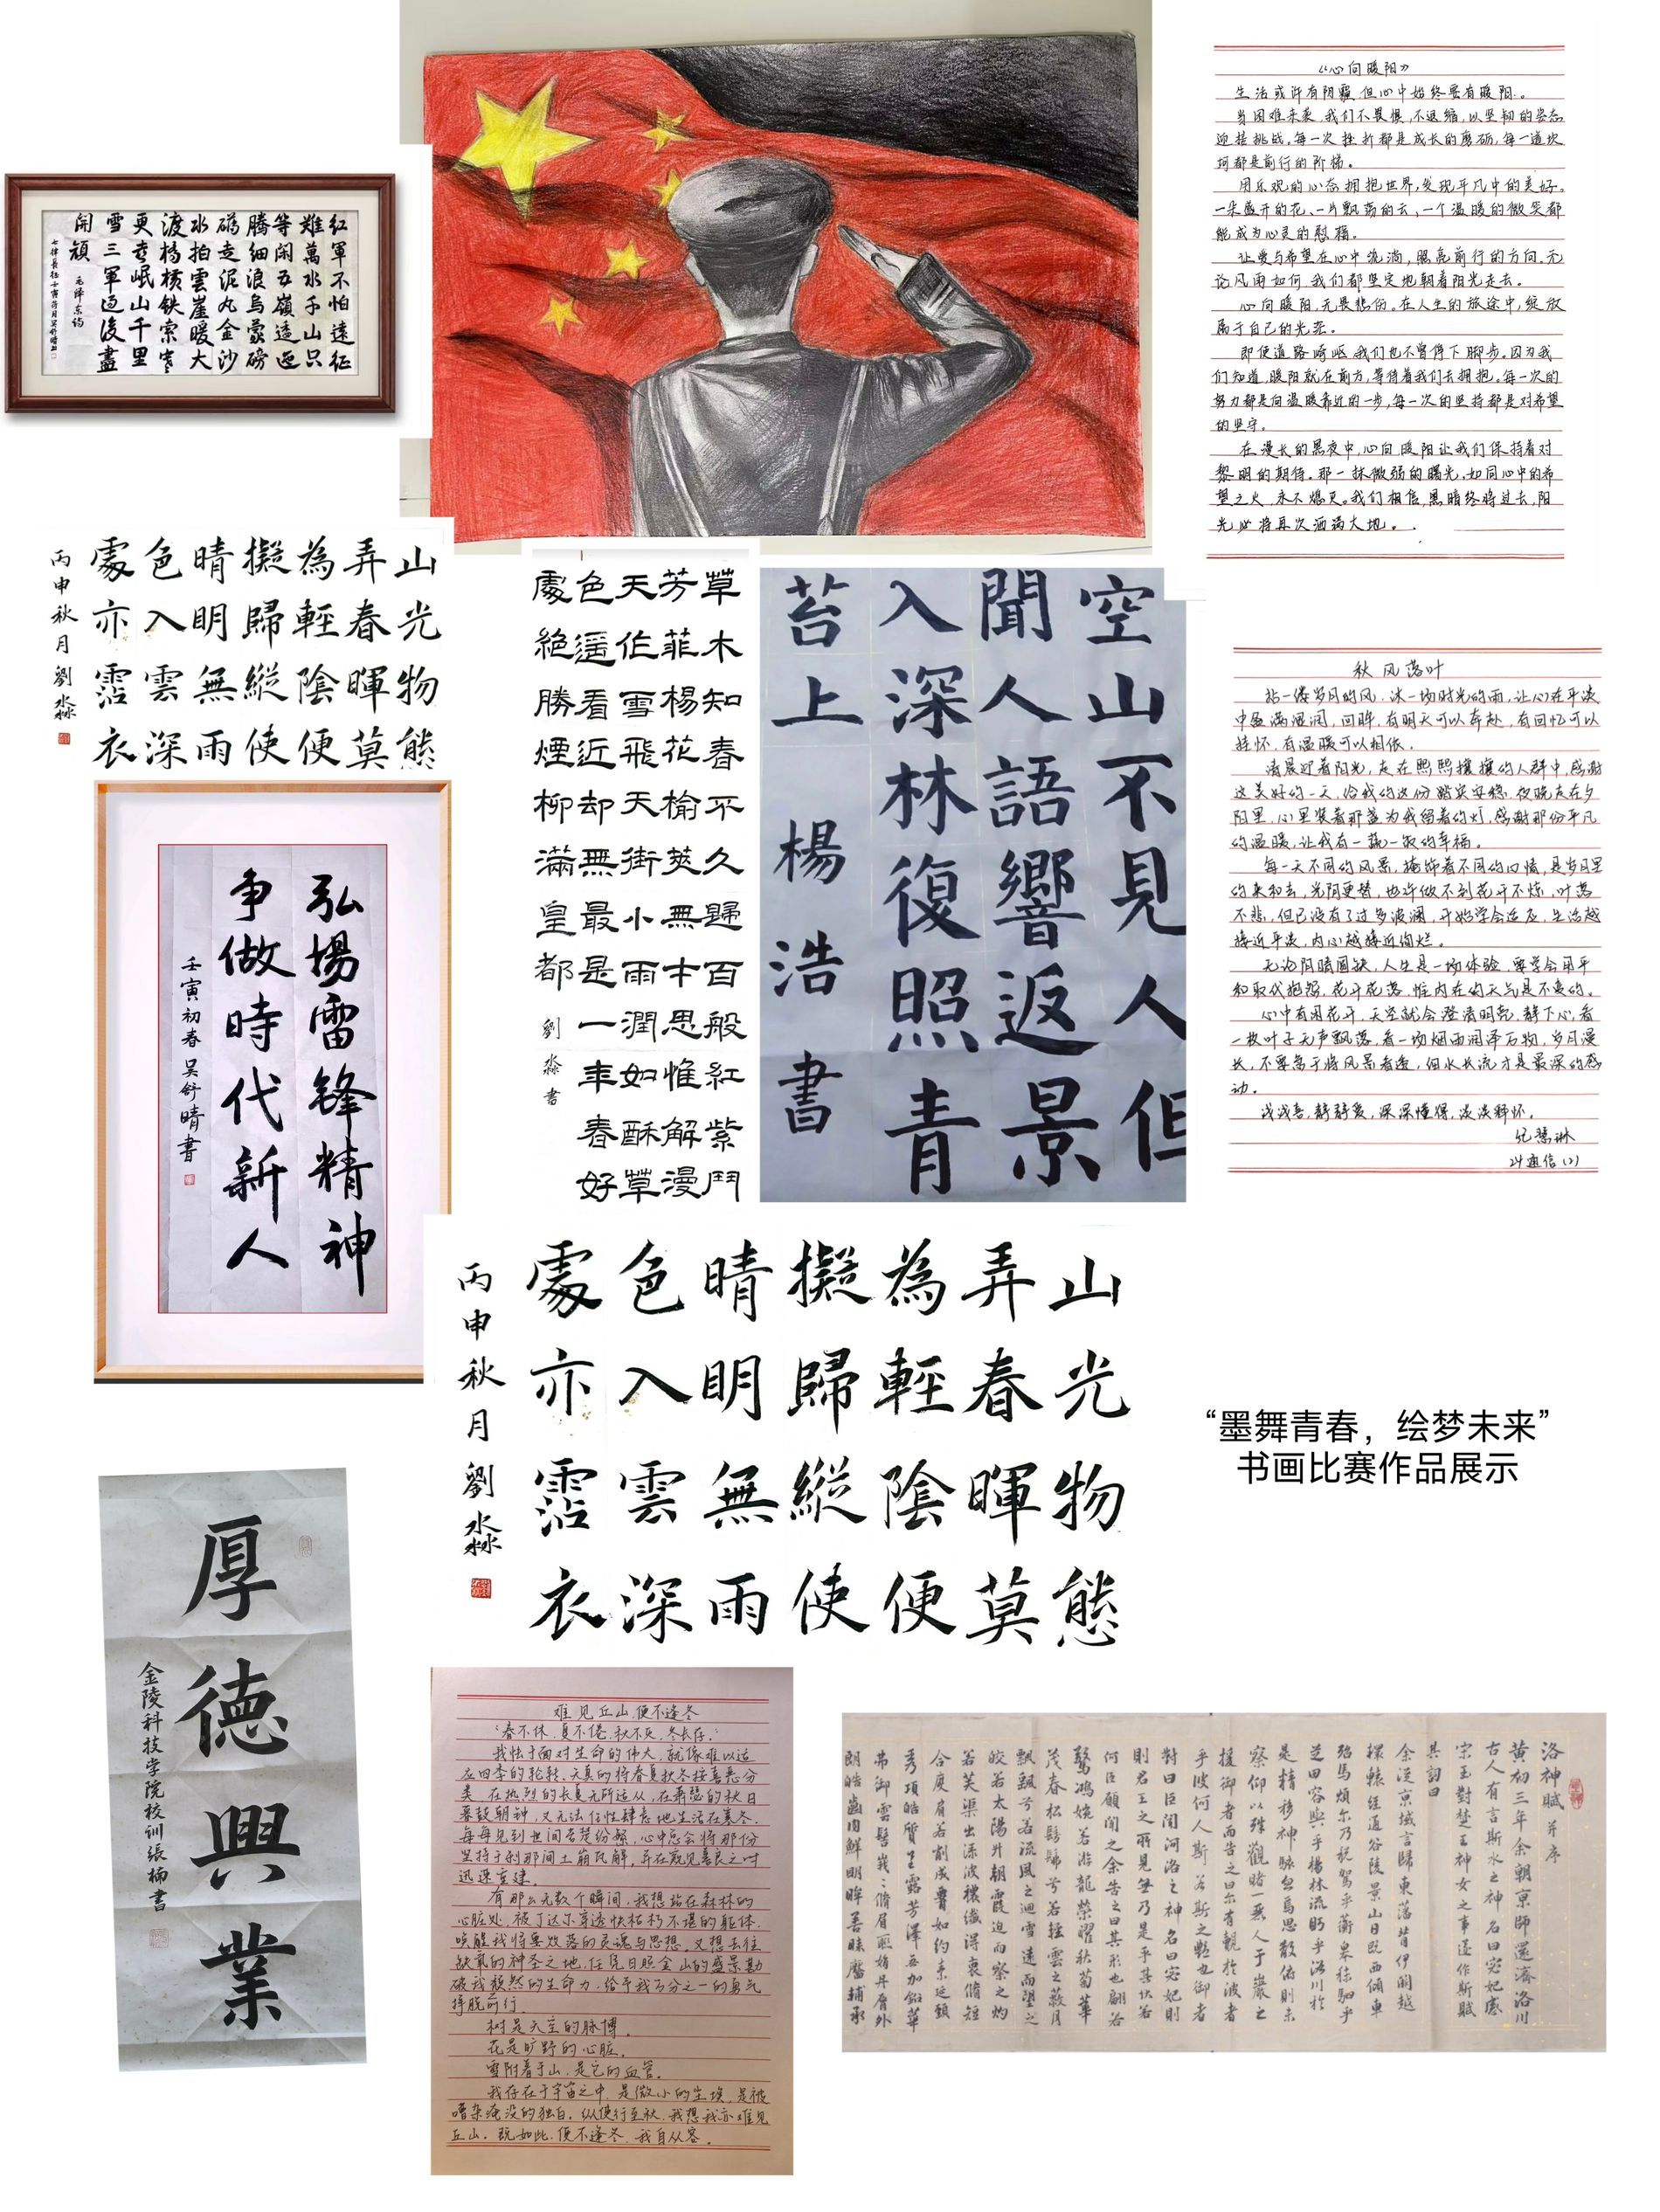 红軍不怕遠征
難萬水千山只
等閑五嶺逶迤
騰細浪烏蒙磅
礴走泥丸金沙
水拍雲崖暖大
渡橋横鉄索寒
更喜岷山千里
雪三軍过後盡
開顔
毛澤东詩
《心向暖阳》
生活或许有阴霾,但心中始终要有暖阳。
当困难来袭,我们不畏惧,不退缩,以坚韧的姿态
迎接挑战。每一次挫折都是成长的磨砺,每一道坎
坷都是前行的阶梯。
用乐观的心态拥抱世界,发现平凡中的美好。
一朵盛开的花、一片飘荡的云,一个温暖的微笑都
能成为心灵的慰藉。
让爱与希望在心中流淌,照亮前行的方向。无
论风雨如何,我们都坚定地朝着阳光走去。
心向暖阳,无畏悲伤。在人生的旅途中,绽放
属于自己的光芒。
即使道路崎岖,我们也不曾停下脚步。因为我
们知道,暖阳就在前方,等待着我们去拥抱。每一次的
努力都是向温暖靠近的一步,每一次的坚持都是对希望
的坚守。
在漫长的黑夜中,心向暖阳让我们保持着对
黎明的期待。那一抹微弱的曙光,如同心中的希
望之火,永不熄灭。我们相信,黑暗终将过去,阳
光必将再次洒满大地。
山光物態
弄春暉莫
為輕陰便
擬歸縱使
晴明無雨
色入雲深
處亦霑衣
丙申秋月劉淼
草木知春不久歸百般紅紫鬥
芳菲楊花榆莢無才思惟解漫
天作雪飛天街小雨潤如酥草
色遥看近却無最是一年春好
處絶勝煙柳滿皇都
劉淼書
空山不見人但
聞人語響返景
入深林復照青
苔上
楊浩書
秋风落叶
拈一缕岁月的风,沐一场时光的雨,让心在平淡
中盈满温润,回眸,有明天可以奔赴,有回忆可以
挂怀,有温暖可以相依。
清晨迎着阳光,走在熙熙攘攘的人群中,感谢
这美好的一天,给我的这份踏实安稳,夜晚走在夕
阳里,心里装着那盏为我留着的灯,感谢那份平凡
的温暖,让我有一蔬一饭的幸福。
每一天不同的风景,掩饰着不同的心情,是岁月里
的来和去,光阴更替,也许做不到花开不惊,叶落
不悲,但已没有了过多波澜,开始学会适应,生活越
接近平淡,内心越接近绚烂。
无论阴晴圆缺,人生是一场体验,要学会用平
和取代抱怨,花开花落,惟内在的天气是不变的。
心中有团花开,天空就会澄清明亮,静下心,看
一枚叶子无声飘落,看一场烟雨润泽石物,岁月漫
长,不要急于将风景看透,细水长流才是最深的感
动。
浅浅喜,静静爱,深深懂得,淡淡释怀。
纪慧琳
24通信(2)
弘揚雷锋精神
争做時代新人
壬寅初春吴舒晴書
山光物態
弄春暉莫
為輕陰便
擬歸縱使
晴明無雨
色入雲深
處亦霑衣
丙申秋月劉淼
“墨舞青春，绘梦未来”
书画比赛作品展示
厚德興業
金陵科技学院校训張楠書
难见丘山,便不逢冬
“春不休,夏不倦,秋不灭,冬长存。”
我怯于面对生命的伟大,就像难以适
应四季的轮转,天真的将春夏秋冬按喜恶分
类,在热烈的长夏无所适从,在萧瑟的秋日
暮鼓朝钟,又无法任性肆意地生活在暮冬。
每每见到世间苦楚纷繁,心中总会将那份
坚持于刹那间土崩瓦解,并在窥见善良之时
迅速重建。
有那么无数个瞬间,我想站在森林的
心脏处,被丁达尔穿透快枯朽不堪的躯体,
唤醒我将要败落的灵魂与思想,又想去往
缺氧的神圣之地,任凭日照金山的盛景勘
破我颓然的生命力,给予我万分之一的勇气
挣脱前行。
树是天空的脉搏,
花是旷野的心脏,
雪附着于山,是它的血管。
我存在于宇宙之中,是微小的尘埃,是被
嘈杂淹没的独白。纵使行至秋,我想我亦难见
丘山。既如此,便不逢冬,我自从容。
洛神賦并序
黄初三年余朝京師還濟洛川
古人有言斯水之神名曰宓妃感
宋玉對楚王神女之事遂作斯賦
其詞曰
余從京域言歸東藩背伊闕越
轘轅經通谷陵景山日既西傾車
殆馬煩尔乃税駕乎蘅皋秣駟乎
芝田容與乎楊林流眄乎洛川於
是精移神駭忽焉思散俯則未
察仰以殊觀睹一麗人于巖之
援御者而告之曰尔有覿於彼者
乎彼何人斯若斯之艷也御者
對曰臣聞河洛之神名曰宓妃則
則君王之所見無乃是乎其状若
何臣願聞之余告之曰其形也翩若
驚鴻婉若游龍榮曜秋菊華
茂春松髣髴兮若輕雲之蔽月
飄飄兮若流風之迴雪遠而望之
皎若太陽升朝霞迫而察之灼
若芙渠出渌波穠纖得衷脩短
合度肩若削成腰如约素延頸
秀項皓質呈露芳澤無加鉛華
弗御雲髻峩峩脩眉聯娟丹唇外
朗皓齒内鮮明眸善睞靨輔承